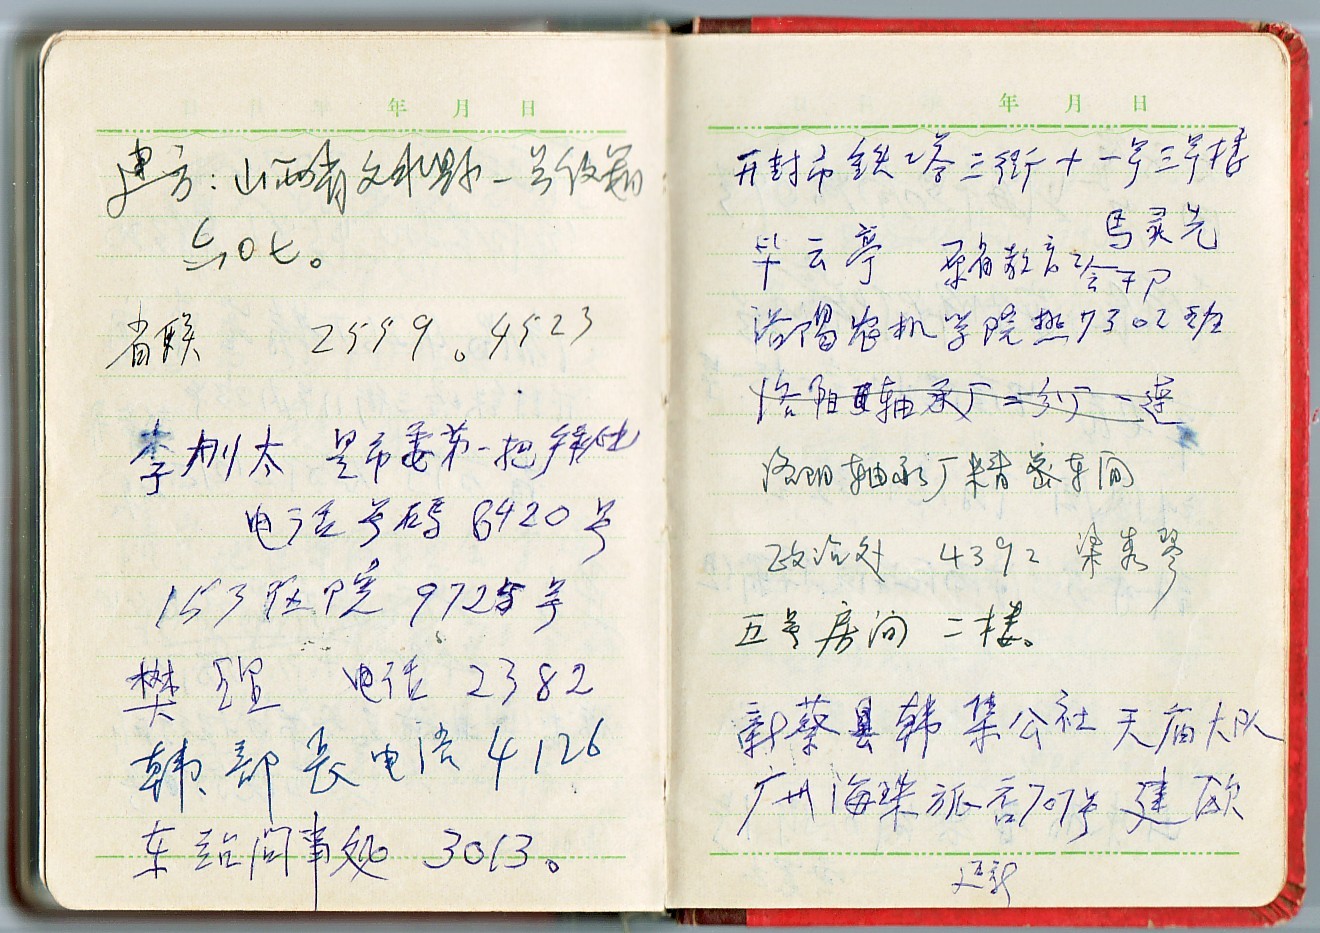 年 月 日
建方：山西省文水县一号信箱
506七。
省联 2559。4523
李刚太 是市委第一把
电话号码 6420号
153医院 9725号
樊 电话 2382
韩部长电话4126
东站问事处 3013。
年 月 日
开封市铁路二街十一号三号楼
马灵光
毕云亭 原省教育厅干部
洛阳农机学院热7302班
洛阳轴承厂二分厂一连
洛阳轴承厂精密车间
政治处 4392 梁秀琴
五号房间 二楼。
新蔡县韩集公社天庙大队
广州海珠旅店707号 建欣
建新